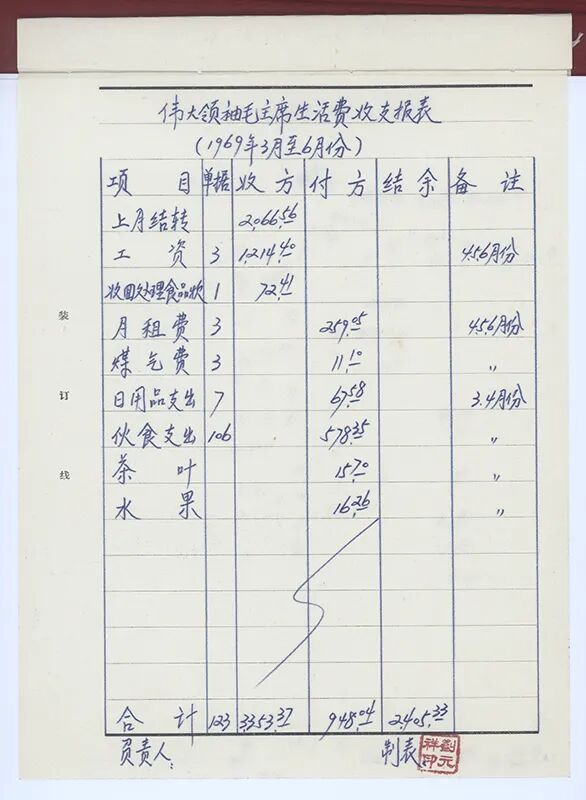 伟大领袖毛主席生活费收支报表
(1969年3月至6月份)
项目 单据 收方 付方 结余 备注
上月结转 2,066.56
工资 3 1,214.40 4.5.6月份
收回处理食品款 1 72.41
月租费 3 259.05 4.5.6月份
煤气费 3 11.10 〃
日用品支出 7 67.58 3.4月份
伙食支出 106 578.35 〃
茶叶 15.70 〃
水果 16.26 〃
合计 123 3353.37 948.04 2,405.33
负责人: 制表:
劉元祥印
装
订
线